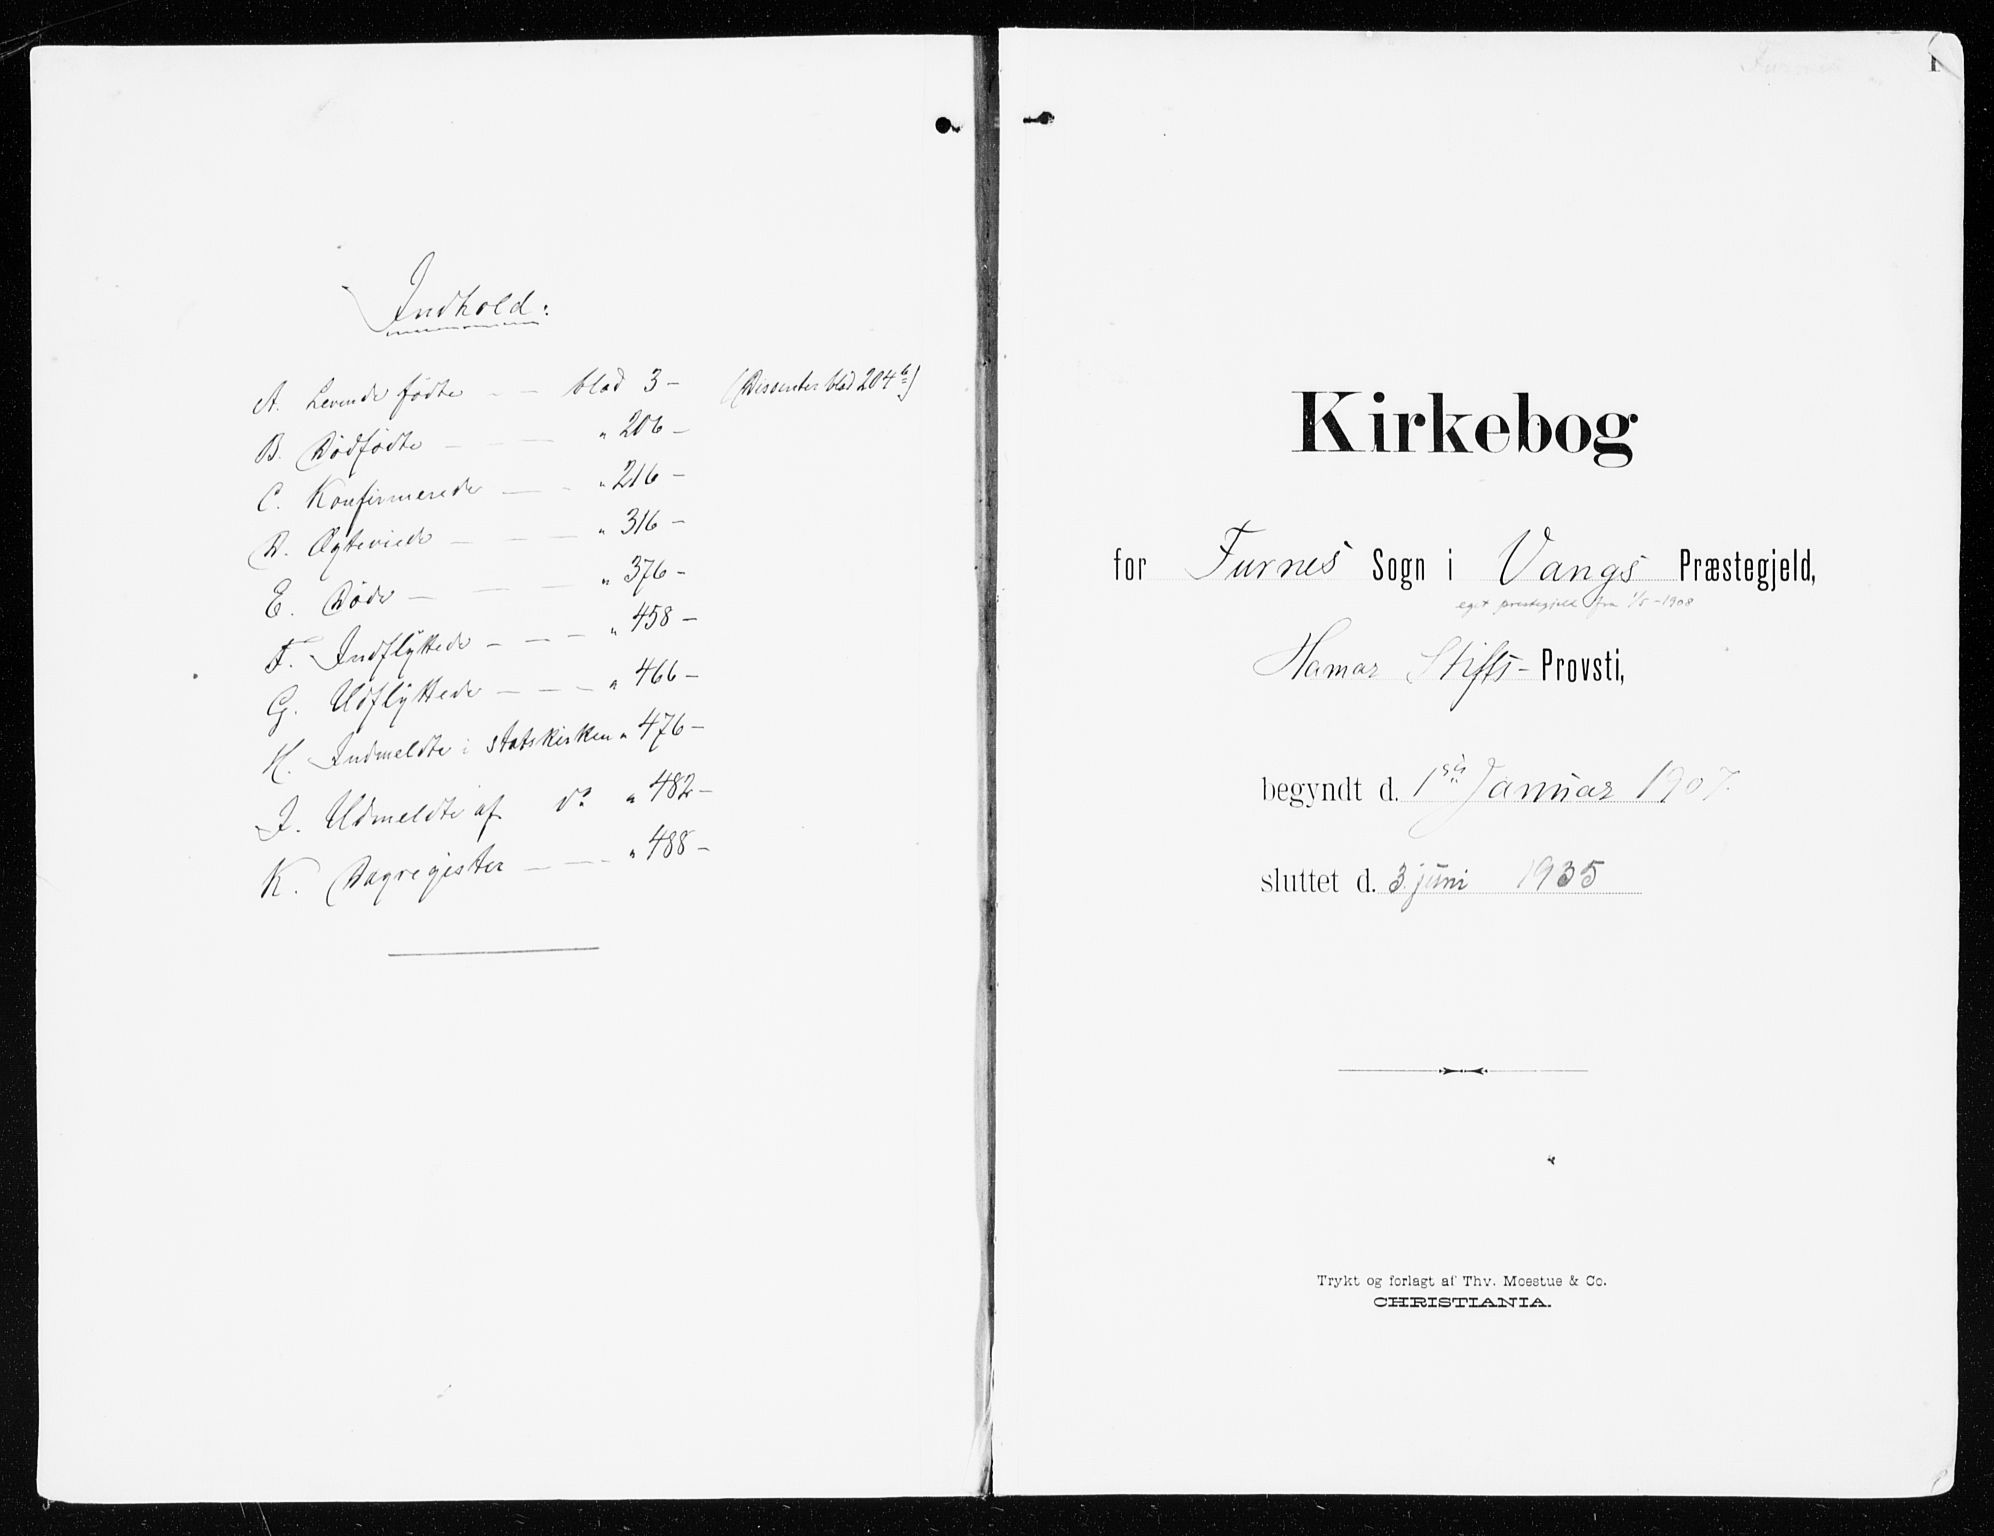 Indhold:
A. Levende fødte - - blad 3 - (Dissenter blad 204 b)
B. Dødfødte - - - " 206 -
C. Konfirmerede - - " 216 -
D. Ægteviede - - - " 316 -
E. Døde - - - " 376 -
F. Indflyttede - - - " 458 -
G. Udflyttede - - - " 466 -
H. Indmeldte i statskirken " 476 -
I. Udmeldte af do " 482 -
K. Dagregister - - - " 488 -
1
Kirkebog
for Furnes Sogn i Vangs Præstegjeld,
eget prestegjeld fra 1/5-1908
Hamar Stifts- Provsti,
begyndt d. 1ste Januar 1907.
sluttet d. 3. juni 1935
Trykt og forlagt af Thv. Moestue & Co.
CHRISTIANIA.